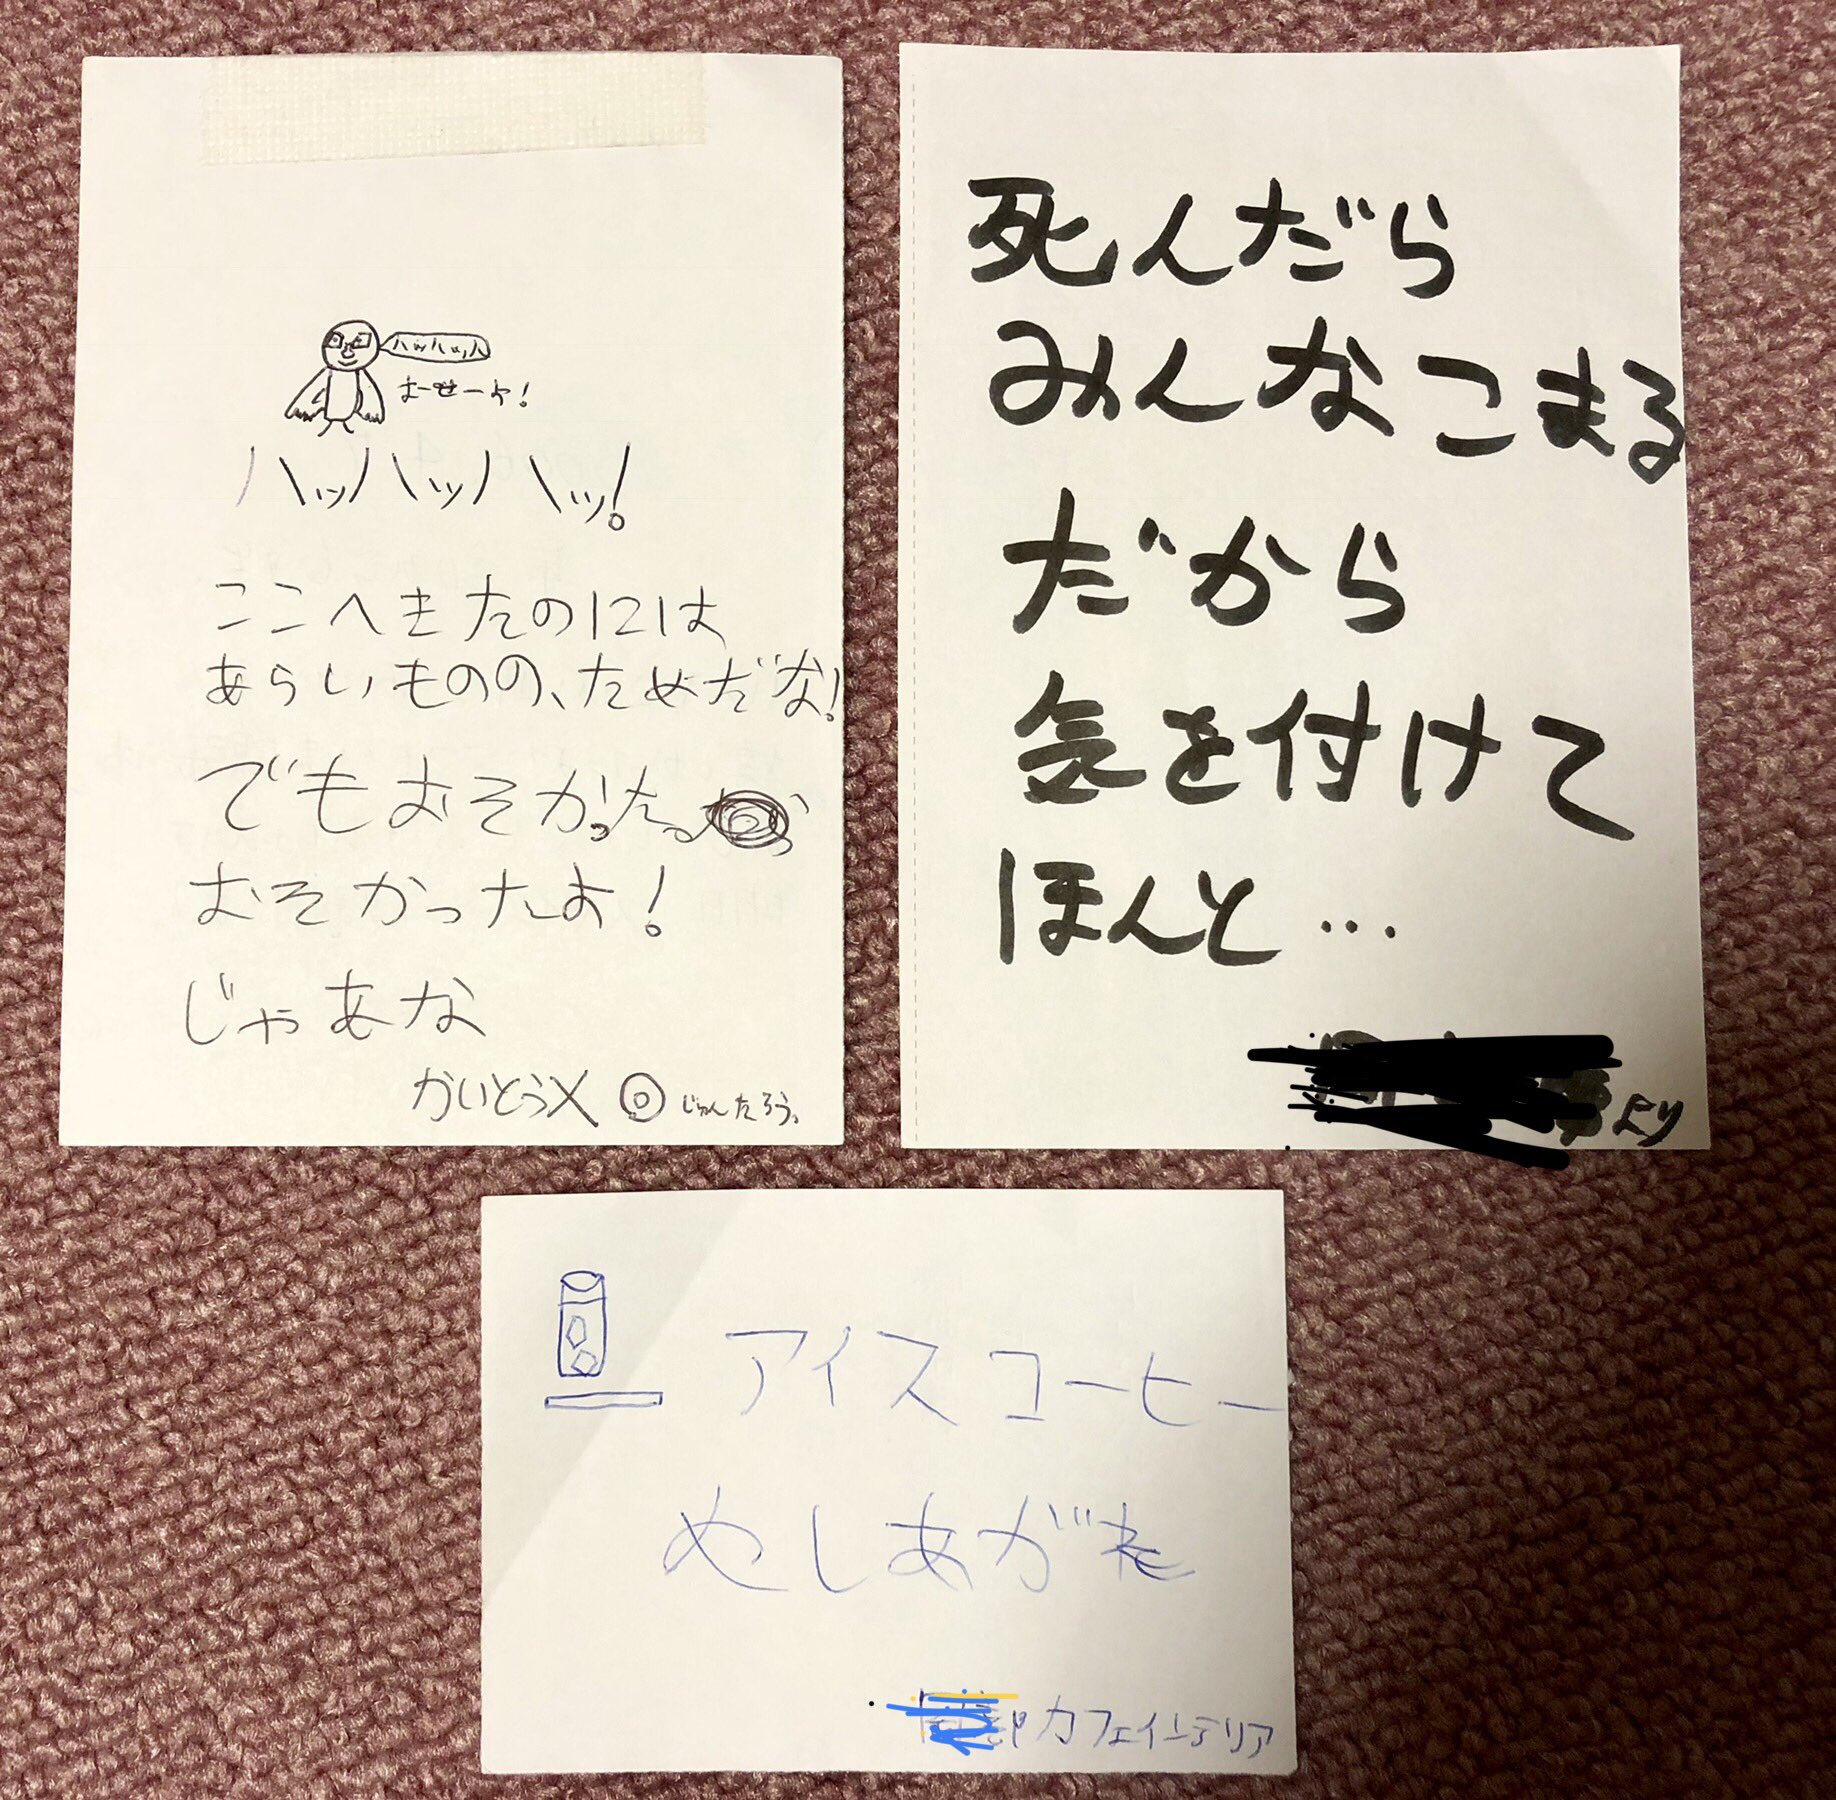 ハッハッハ
おーせーよ!
ハッハッハッ!
ここへきたのには
あらいものの、ためだな!
でもおそかった。
おそかったよ!
じゃあな
かいとうX じゅんたろう。
死んだら
みんなこまる
だから
気を付けて
ほんと…
より
アイスコーヒー
めしあがれ
カフェインテリア